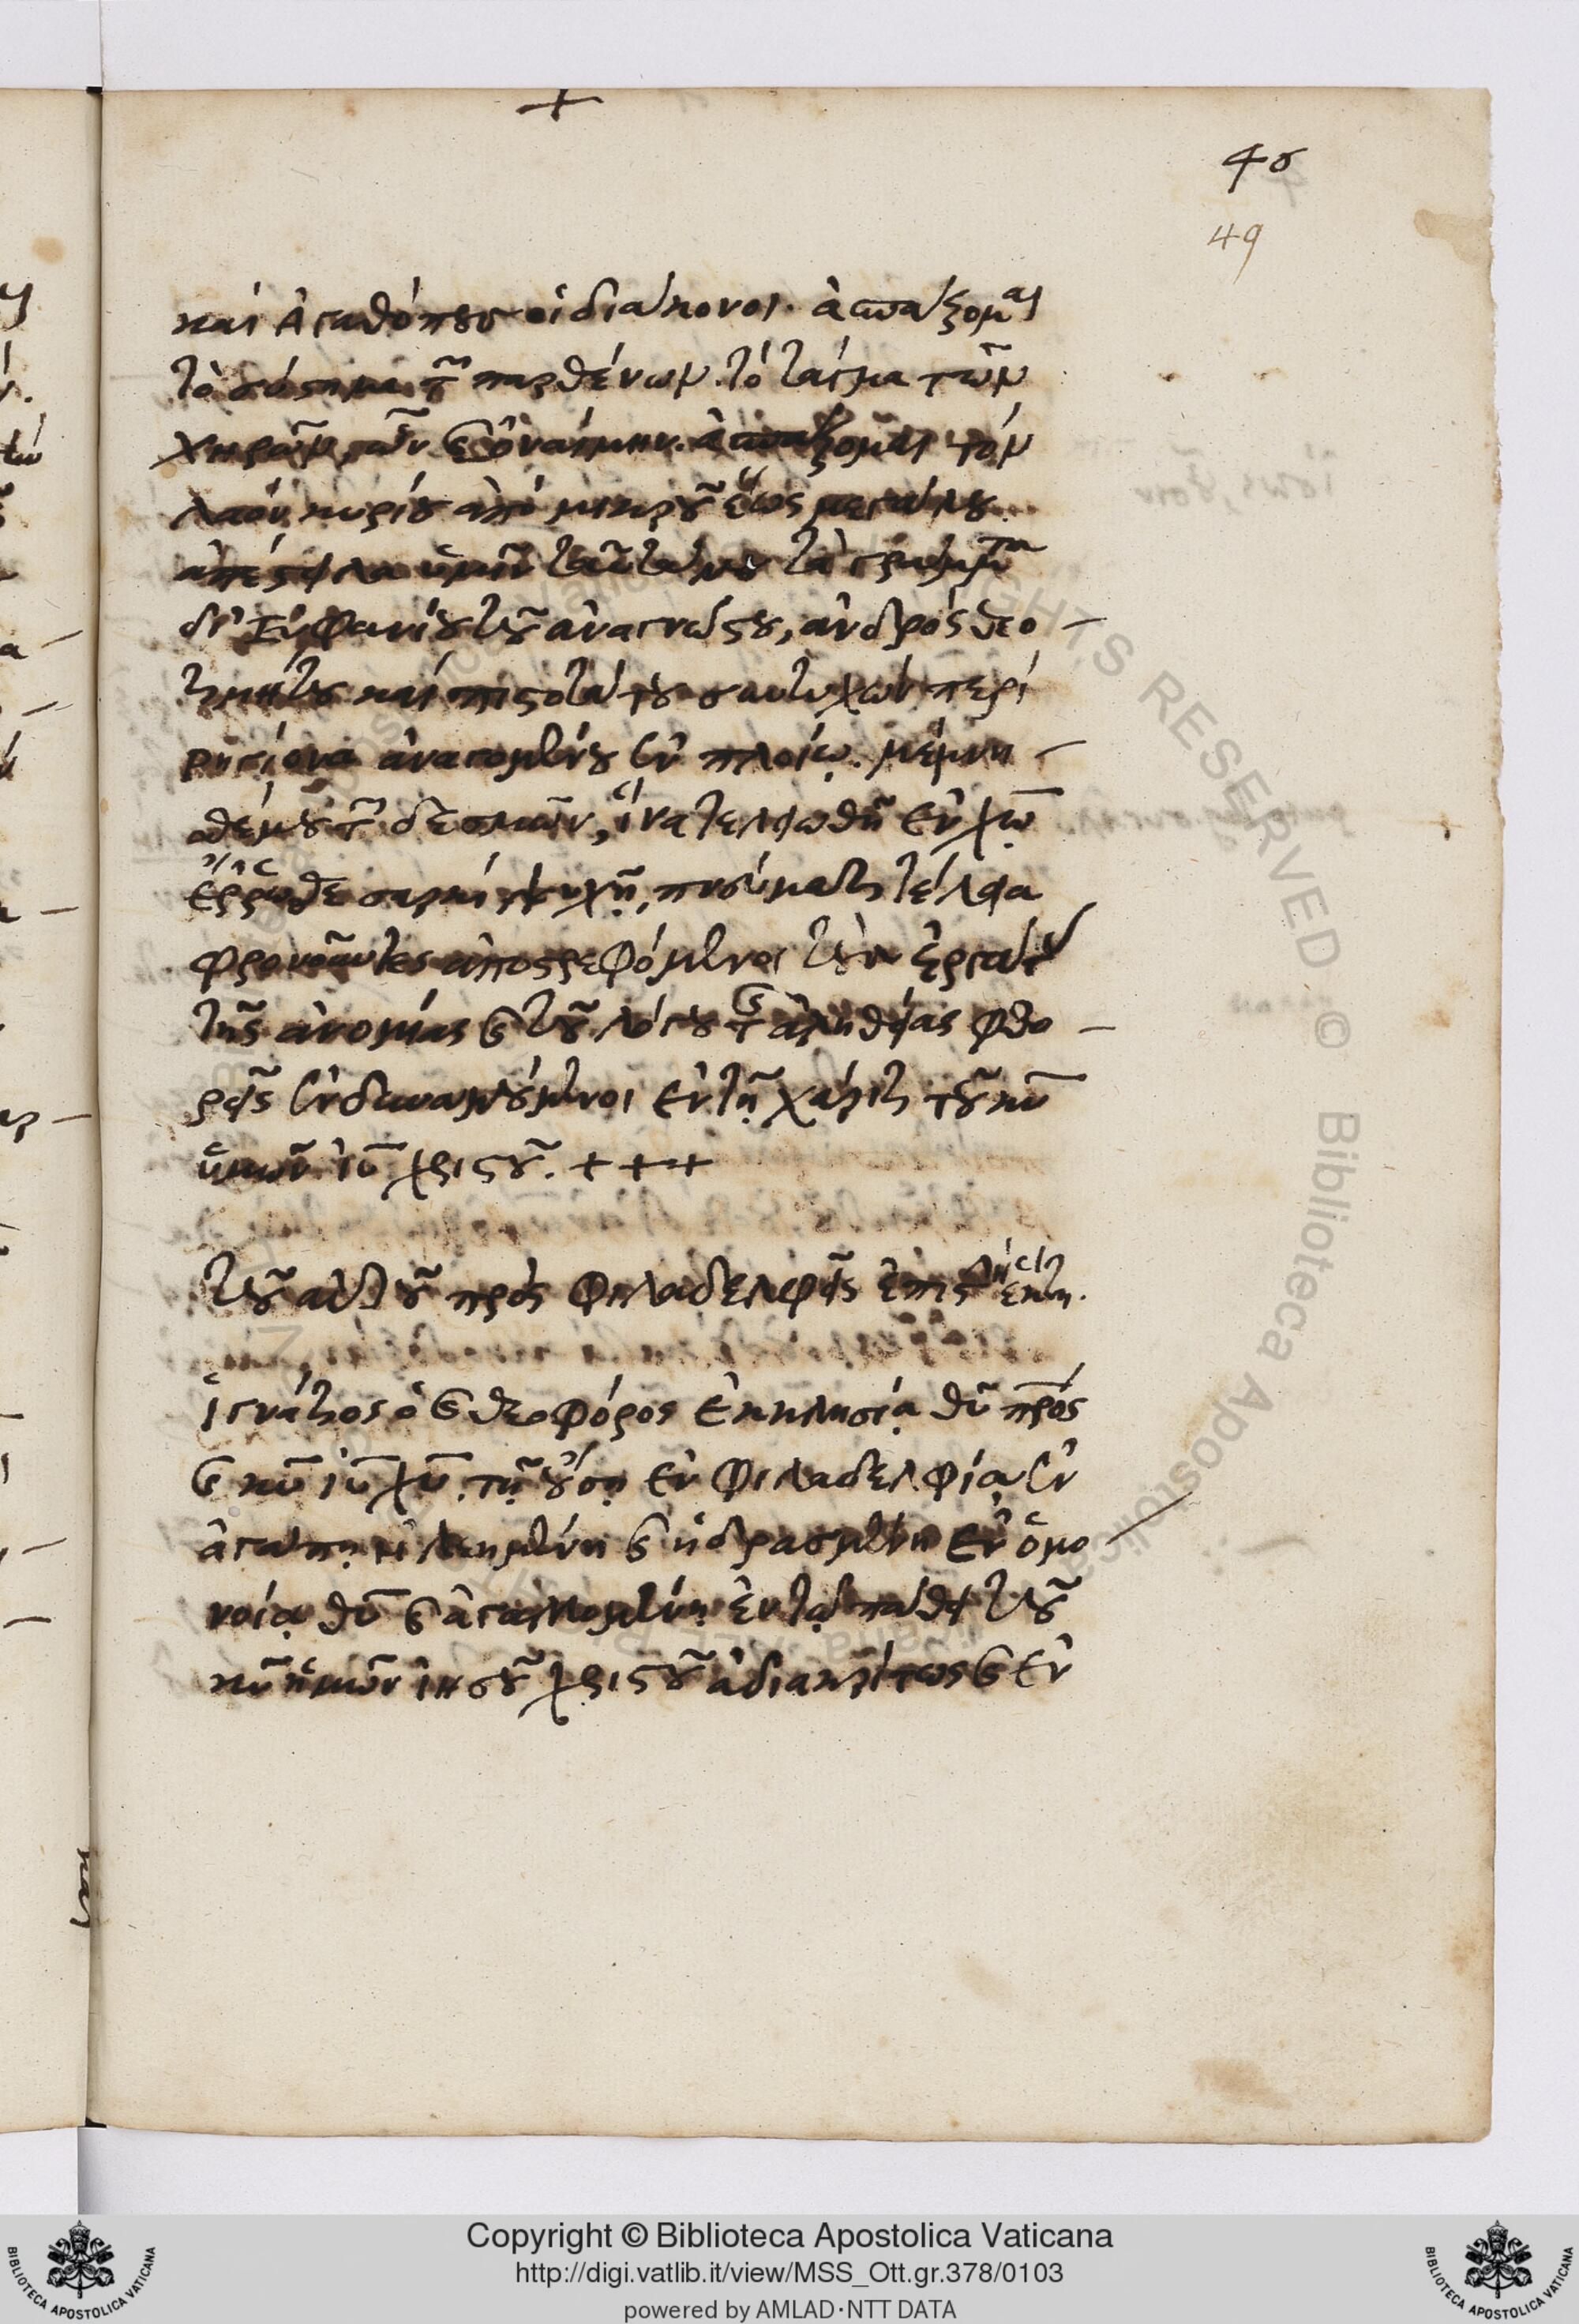 +
49
49
καὶ Ἀγαθόπους οἱ διάκονοι. ἀσπάζομαι
τὸ σύστημα τῶν παρθένων. τὸ τάγμα τῶν
χηρῶν, ὧν καὶ ὀναίμην. ἀσπάζομαι τὸν
λαὸν κυρίου ἀπὸ μικροῦ ἕως μεγάλου.
ἀπέστειλα ὑμῖν ταῦτά μου τὰ γράμματα
δι' Εὐφανίου τοῦ ἀναγνώστου, ἀνδρὸς θεο
τιμήτου καὶ πιστοτάτου συντυχὼν περὶ
ρηγίονα ἀναγομένου ἐν πλοίῳ. μέμνη
σθέ μου τῶν δεσμῶν, ἵνα τελειωθῶ ἐν χω
ἔρρωσθε σαρκί, ψυχῇ, πνεύματι τέλεια
φρονοῦντες ἀποστρεφόμενοι τοὺς ἐργάτας
τῆς ἀνομίας καὶ τοῦ λόγου τῆς ἀληθείας φθο
ρεῖς ἐνδυναμούμενοι ἐν τῇ χάριτι τοῦ κυ
ἡμῶν ιυ χριστοῦ. + + +
τοῦ αὐτοῦ πρὸς Φιλαδελφεῖς ἐπιστολὴ ἕκτη.
ἰγνάτιος ὁ καὶ θεοφόρος ἐκκλησίᾳ θυ πρς
καὶ κυ ιυ χυ. τῇ οὔσῃ ἐν Φιλαδελφίᾳ ἐν
ἀγάπῃ ἠλεημένῃ καὶ ἡδρασμένῃ ἐν ὁμο
νοίᾳ θυ καὶ ἀγαλλωμένῃ ἐν τῷ πάθει τοῦ
κυ ἡμῶν ἰησοῦ χριστοῦ ἀδιακρίτως καὶ ἐν
Copyright © Biblioteca Apostolica Vaticana
http://digi.vatlib.it/view/MSS_Ott.gr.378/0103
powered by AMLAD·NTT DATA